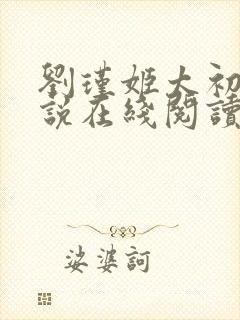 劉瑾姬大初
說在綫閱讀
娑婆訶